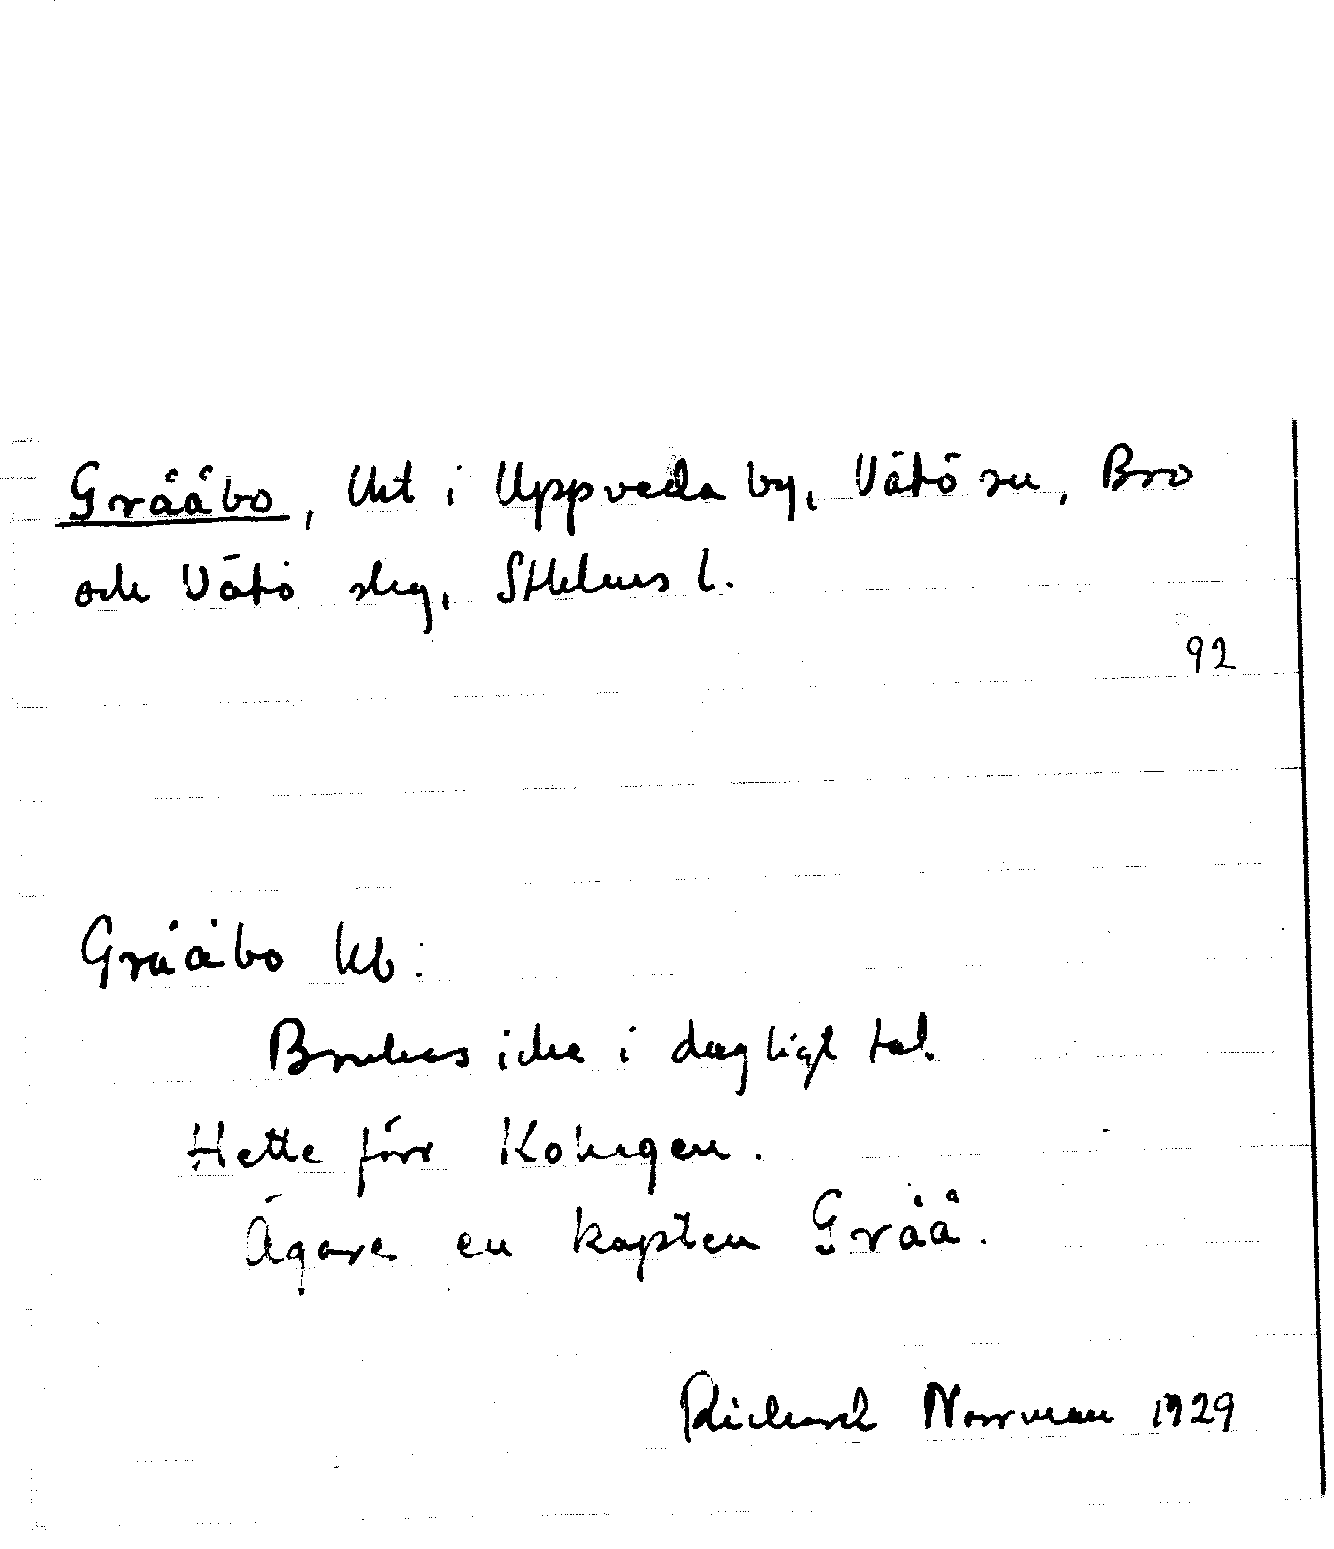 Grååbo, Uet i Uppveda by, Vätö sn, Bro
och Vätö skg, Sthlms l.
92
Grååbo
Brukas icke i dagligt tal.
Hette förr Kohagen.
Ägare en kapten Gråå.
Richard Norrman 1929